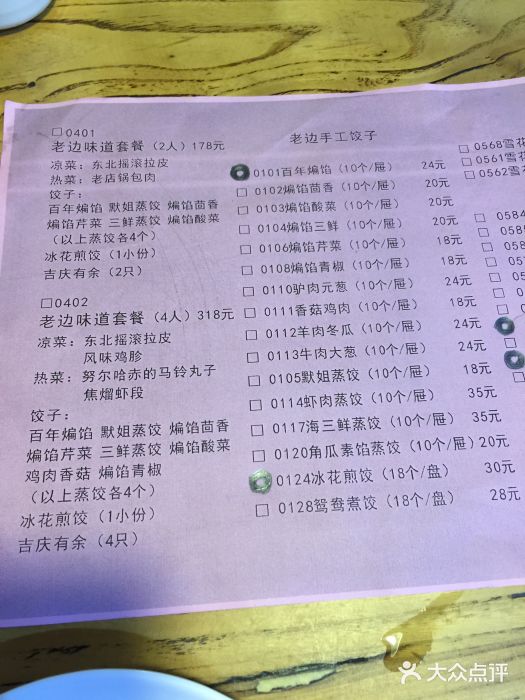 □0401
老边味道套餐（2人）178元
凉菜：东北摇滚拉皮
热菜：老店锅包肉
饺子：
百年煸馅 默姐蒸饺 煸馅茴香
煸馅芹菜 三鲜蒸饺 煸馅酸菜
（以上蒸饺各4个）
冰花煎饺（1小份）
吉庆有余（2只）
□0402
老边味道套餐（4人）318元
凉菜：东北摇滚拉皮
风味鸡胗
热菜：努尔哈赤的马铃丸子
焦熘虾段
饺子：
百年煸馅 默姐蒸饺 煸馅茴香
煸馅芹菜 三鲜蒸饺 煸馅酸菜
鸡肉香菇 煸馅青椒
（以上蒸饺各4个）
冰花煎饺（1小份）
吉庆有余（4只）
老边手工饺子
0101百年煸馅（10个/屉） 24元
□ 0102煸馅茴香（10个/屉） 20元
□ 0103煸馅酸菜（10个/屉） 20元
□ 0104煸馅三鲜（10个/屉） 20元
□ 0106煸馅芹菜（10个/屉） 18元
□ 0108煸馅青椒（10个/屉） 18元
□ 0110驴肉元葱（10个/屉） 24元
□ 0111香菇鸡肉（10个/屉） 18元
□ 0112羊肉冬瓜（10个/屉） 24元
□ 0113牛肉大葱（10个/屉） 24元
□ 0105默姐蒸饺（10个/屉） 18元
□ 0114虾肉蒸饺（10个/屉） 35元
□ 0117海三鲜蒸饺（10个/屉） 35元
□ 0120角瓜素馅蒸饺（10个/屉）20元
0124冰花煎饺（18个/盘） 30元
□ 0128鸳鸯煮饺（18个/盘） 28元
□ 0568雪花
□ 0561雪花
□ 0562雪
□ 0584
□ 058
□ 058
□ 05
□ 05
□ 0
大众点评